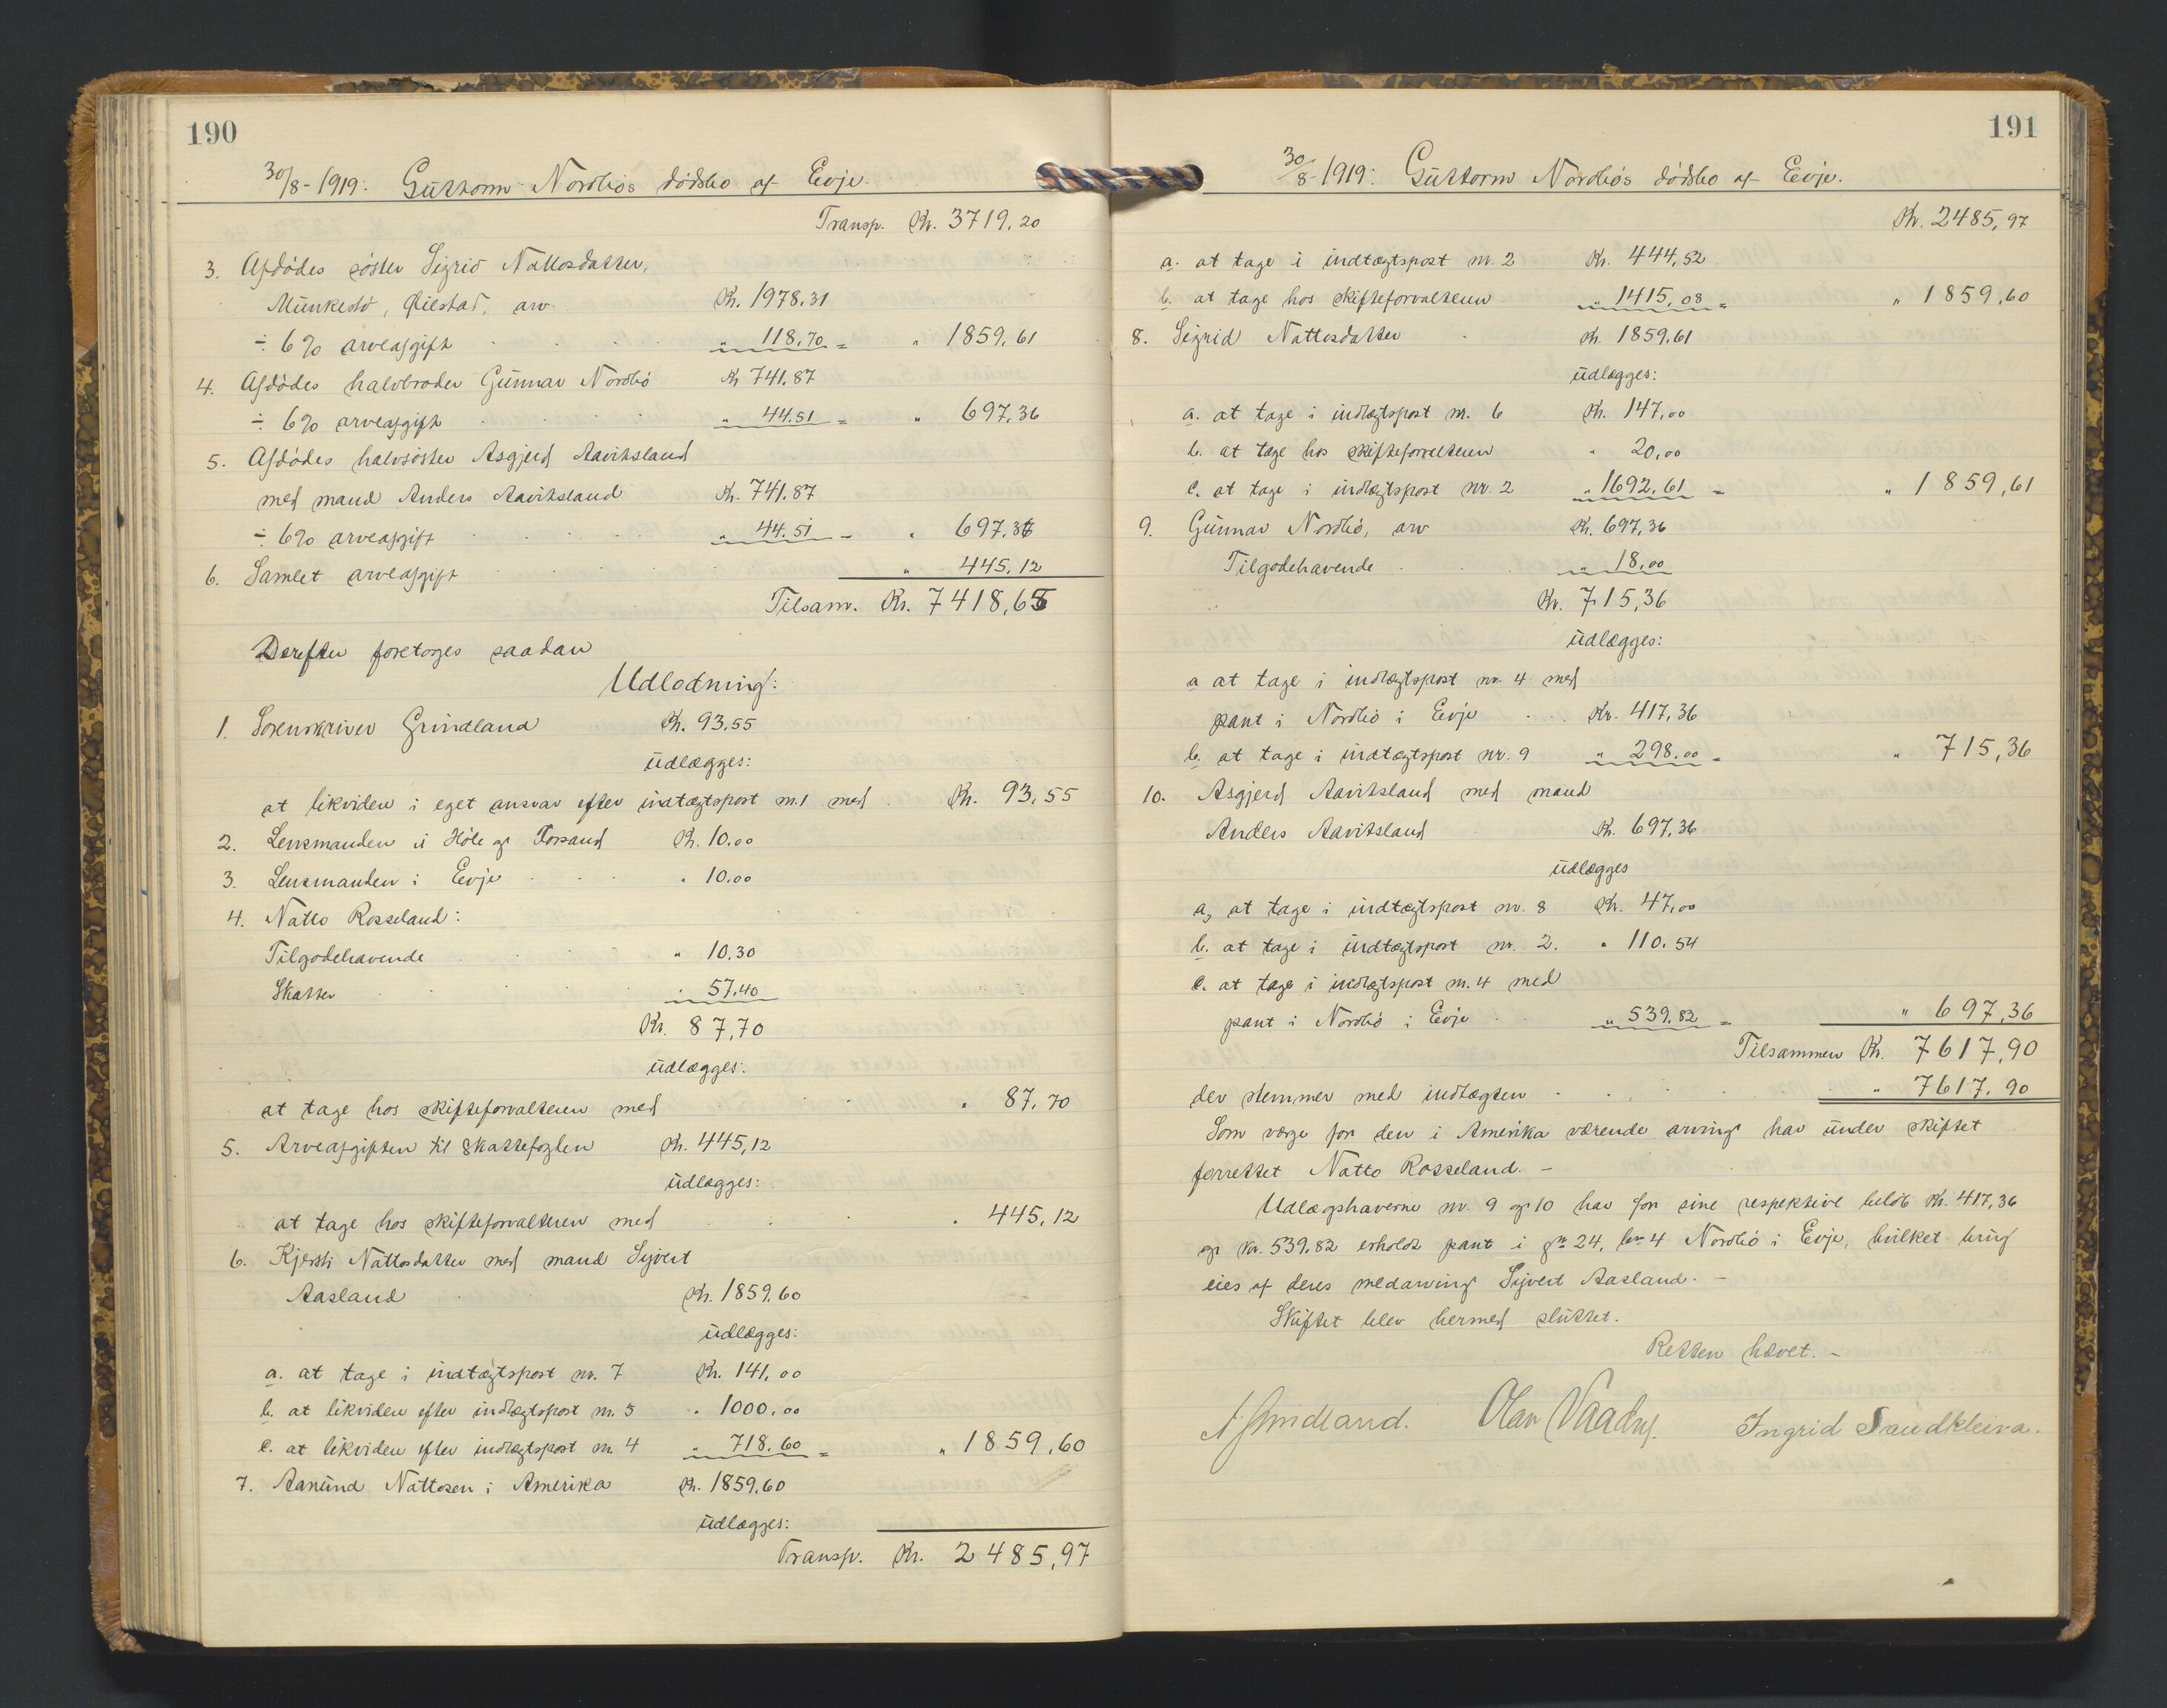 190
30/8-1919. Guttorm Nordbøs dødsbo af Evje.
Transp. Kr. 3719,20
3. Afdødes søster Sigrid Nattosdatter,
Munkebø, Øiestad, arv Kr. 1978.31
÷ 6% arveafgift " 118,70 = " 1859,61
4. Afdødes halvbroder Gunnar Nordbø Kr 741.87
÷ 6% arveafgift " 44.51 = " 697,36
5. Afdødes halvsøster Asgjerd Aavitsland
med mand Anders Aavitsland Kr. 741.87
÷ 6% arveafgift " 44.51 = " 697.36
6. Samlet arveafgift " 445,12
Tilsam. Kr. 7418,65
Derefter foretoges saadan
Udlodning:
1. Sorenskriver Grindland Kr. 93.55
udlægges:
at likviden i eget ansvar efter indtægtspost nr. 1 med Kr. 93,55
2. Lensmanden i Høle og Forsand Kr. 10.00
3. Lensmanden i Evje " 10.00
4. Natto Rosseland:
Tilgodehavende " 10.30
Skatter " 57.40
Kr. 87,70
udlægges:
at tage hos skifteforvalteren med " 87,70
5. Arveafgiften til skattefogden Kr. 445,12
udlægges:
at tage hos skifteforvalteren med " 445,12
6. Kjersti Nattosdatter med mand Syvert
Aasland Kr. 1859.60
udlægges:
a. at tage i indtægtspost nr. 7 Kr. 141,00
b. at likviden efter indtægtspost nr. 5 " 1000,00
c. at likviden efter indtægtspost nr 4 " 718.60 = " 1859,60
7. Aanund Nattosen i Amerika Kr. 1859.60
udlægges:
Transp. Kr. 2485,97
191
30/8-1919. Guttorm Nordbøs dødsbo af Evje.
Kr. 2485,97
a. at tage i indtægtspost nr. 2 Kr. 444,52
b. at tage hos skifteforvalteren " 1415,08 = " 1859,60
8. Sigrid Nattosdatter Kr. 1859.61
udlægges:
a. at tage i indtægtspost nr. 6 Kr. 147,00
b. at tage hos skifteforvalteren " 20,00
c. at tage i indtægtspost nr. 2 " 1692,61 = " 1859,61
9. Gunnar Nordbø, arv Kr. 697,36
Tilgodehavende " 18,00
Kr. 715,36
udlægges:
a at tage i indtægtspost nr. 4 med
pant i Nordbø i Evje Kr. 417,36
b. at tage i indtægtspost nr. 9 " 298.00 = " 715,36
10. Asgjerd Aavitsland med mand
Anders Aavitsland Kr. 697,36
udlægges
a, at tage i indtægtspost nr. 8 Kr. 47,00
b. at tage i indtægtspost nr. 2. " 110.54
c. at tage i indtægtspost nr. 4 med
pant i Nordbø i Evje " 539.82 = " 697,36
Tilsammen Kr. 7617,90
der stemmer med indtægten " 7617.90
Som værge for den i Amerika værende arving har under skiftet
forrettet Natto Rosseland. -
Udlægshaverne nr. 9 og 10 har for sine respektive beløb Kr. 417,36
og Kr. 539.82 erholdt pant i gnr 24, bnr 4 Nordbø i Evje, hvilket brug
eies af deres medarving Syvert Aasland. -
Skiftet blev hermed sluttet.
Retten hævet. -
A Grindland. Olav Ingrid Sandkleiva.